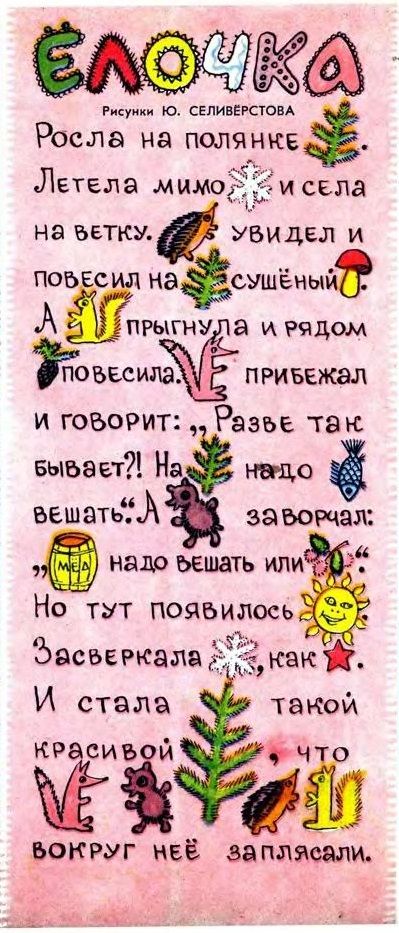 ЁЛОЧКА
Рисунки Ю. СЕЛИВЁРСТОВА
Росла на полянке .
Летела мимо и села
на ветку. увидел и
повесил на сушёный .
А прыгнула и рядом
повесила. прибежал
и говорит: „ Разве так
бывает?! На надо
вешать“. А заворчал:
„ МЁД надо вешать или “.
Но тут появилось .
Засверкала , как .
И стала такой
красивой , что
вокруг неё заплясали.